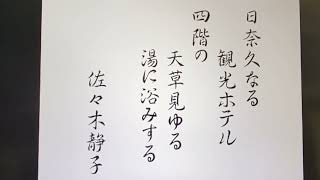 日奈久なる
観光ホテル
四階の
天草見ゆる
湯に浴みする
佐々木静子